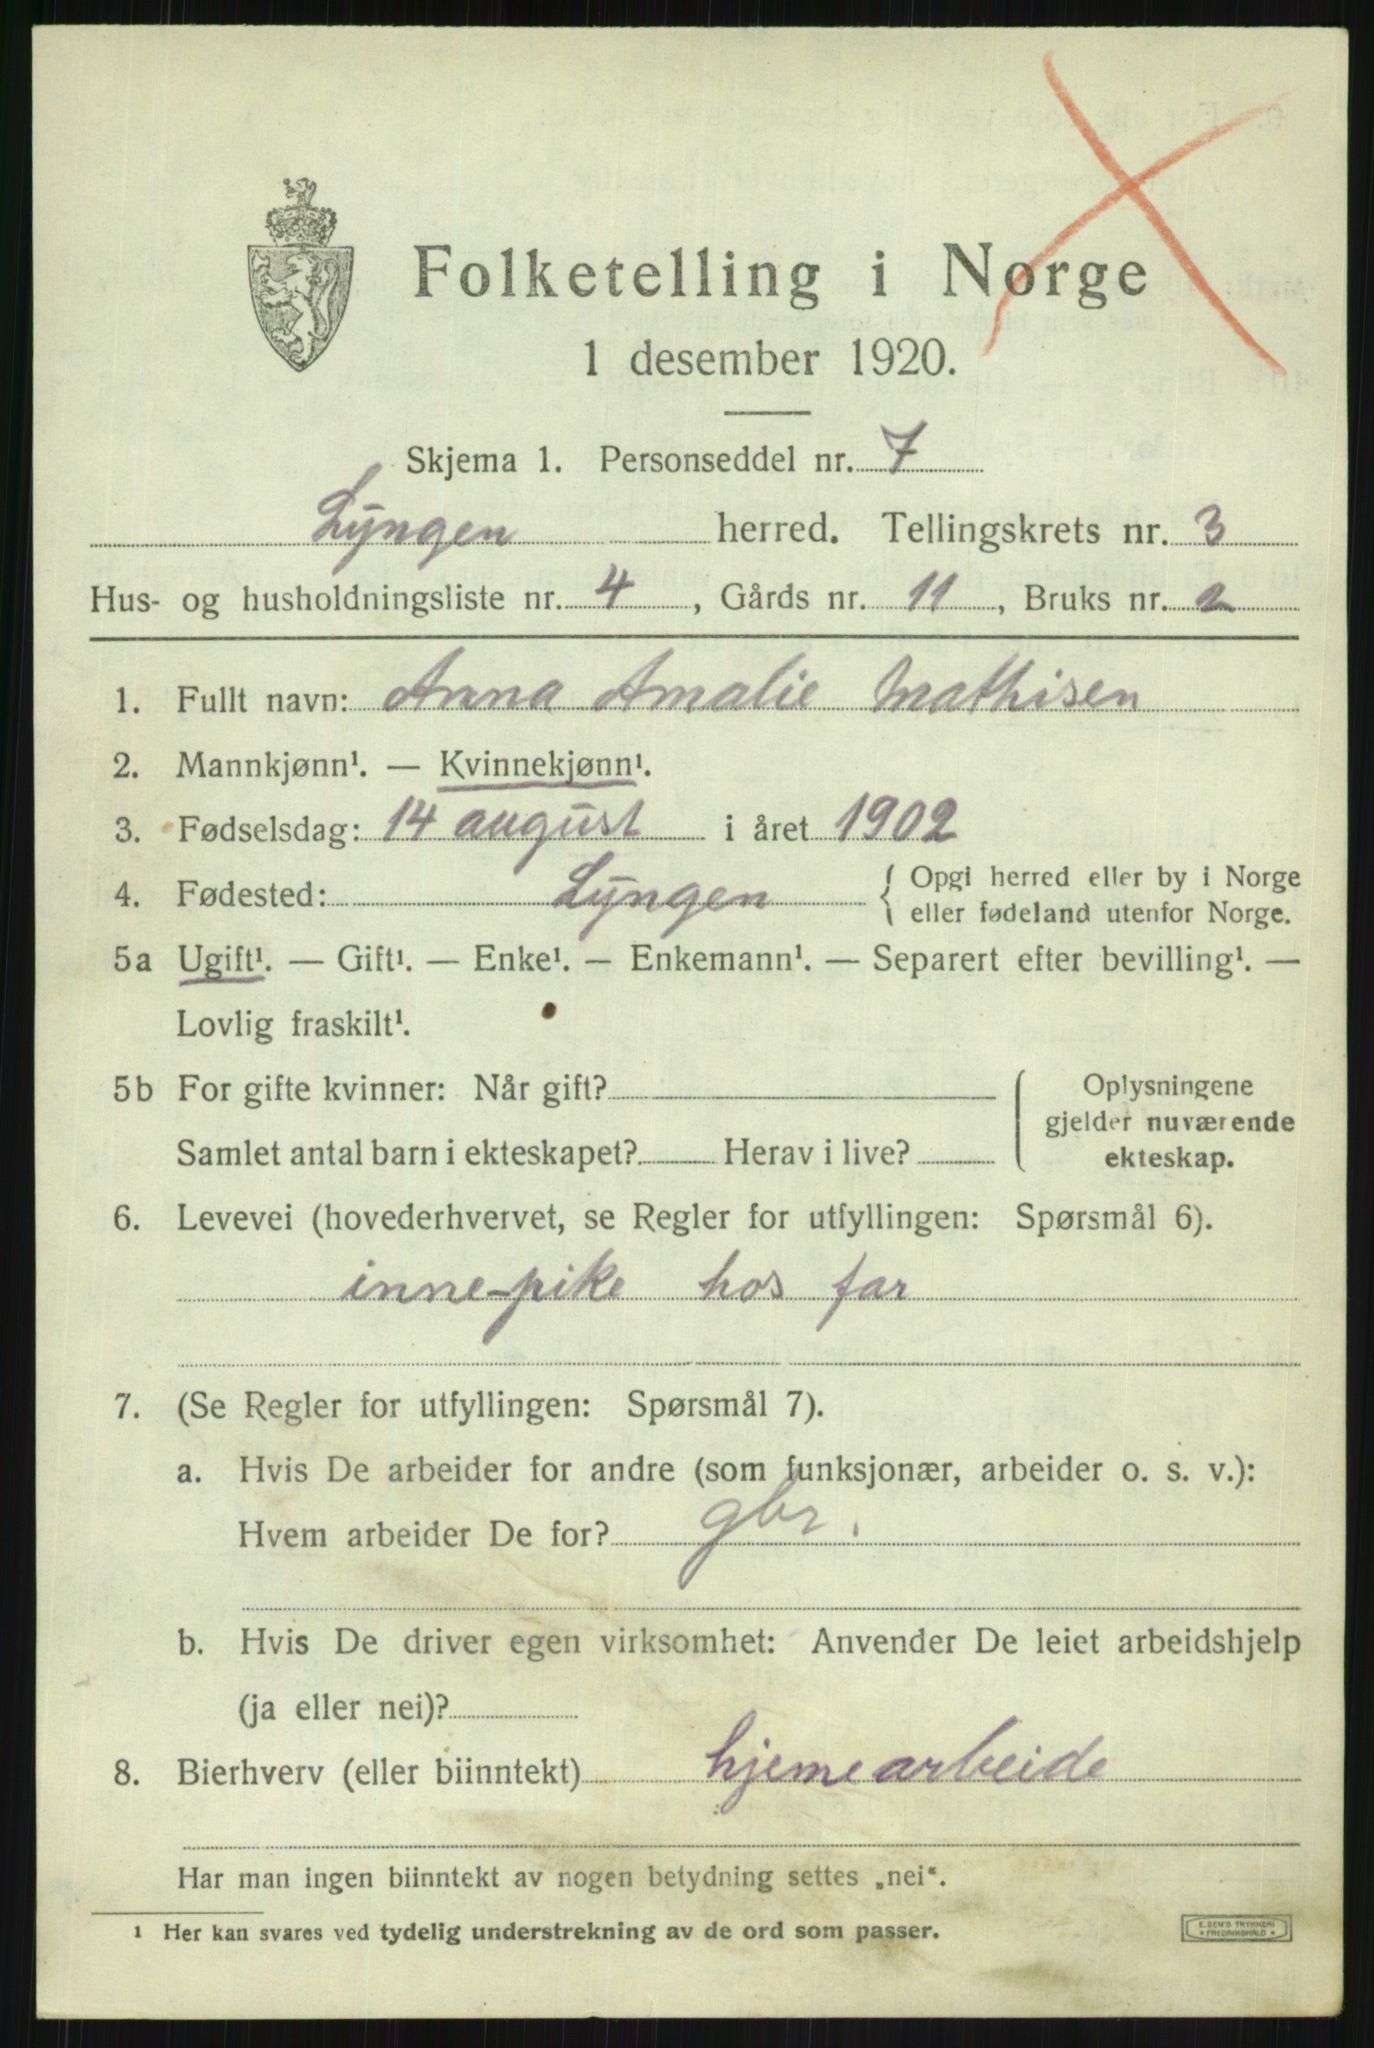 Folketelling i Norge
1 desember 1920.
Skjema 1. Personseddel nr. 7
Lyngen herred. Tellingskrets nr. 3
Hus- og husholdningsliste nr. 4, Gårds nr. 11, Bruks nr. 2
1. Fullt navn: Anna Amalie Mathisen
2. Mannkjønn¹. — Kvinnekjønn¹.
3. Fødselsdag: 14 august i året 1902
4. Fødested: Lyngen { Opgi herred eller by i Norge
eller fødeland utenfor Norge.
5a Ugift¹. — Gift¹. — Enke¹. — Enkemann¹. — Separert efter bevilling¹. —
Lovlig fraskilt¹.
5b For gifte kvinner: Når gift?
Samlet antal barn i ekteskapet? Herav i live?
Oplysningene
gjelder nuværende
ekteskap.
6. Levevei (hovederhvervet, se Regler for utfyllingen: Spørsmål 6).
inne-pike hos far
7. (Se Regler for utfyllingen: Spørsmål 7).
a. Hvis De arbeider for andre (som funksjonær, arbeider o. s. v.):
Hvem arbeider De for? gbr.
b. Hvis De driver egen virksomhet: Anvender De leiet arbeidshjelp
(ja eller nei)?
8. Bierhverv (eller biinntekt) hjemearbeide
Har man ingen biinntekt av nogen betydning settes „nei“.
¹ Her kan svares ved tydelig understrekning av de ord som passer.
E. SEM'S TRYKKERI
* FREDRIKSHALD *